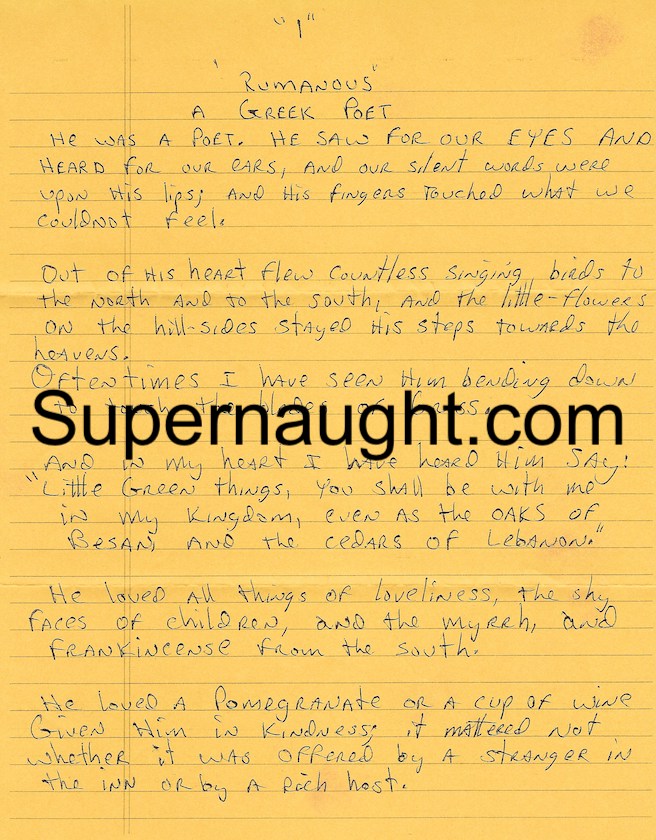 "1"
"RUMANOUS"
A GREEK POET
HE WAS A POET. HE SAW FOR OUR EYES AND
HEARD FOR OUR EARS, AND OUR silent words were
upon His lips; AND His fingers Touched what we
couldnot feel.
Out of His heart flew countless singing birds to
the NORTH AND to the south, AND the little-flowers
ON the hill-sides stayed His steps towards the
heavens.
Oftentimes I have seen Him bending down
to touch the blades of Grass.
Supernaught.com
AND in my heart I have heard Him SAY:
"Little Green things, you shall be with me
in my Kingdom, even as the OAKS of
BESAN, AND the cedars of Lebanon."
He loved all things of loveliness, the shy
FACES of children, and the myrrh, and
FRANKINCENSE from the south.
He loved A Pomegranate or a cup of wine
Given Him in Kindness; it mattered not
whether it was offered by A stranger in
the INN or by A Rich host.